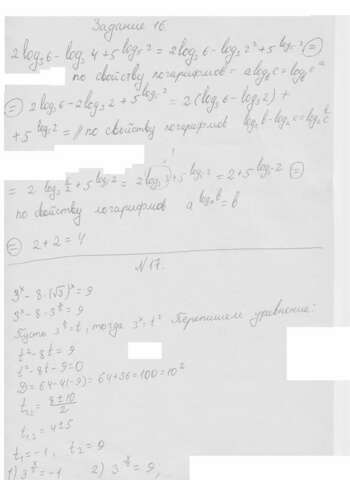 Задание 16.
2log₃6 - log₃4 + 5^log₅2 = 2log₃6 - log₃2² + 5^log₅2 =
по свойству логарифмов = a log_b c = log_b c^a
= 2log₃6 - 2log₃2 + 5^log₅2 = 2(log₃6 - log₃2) +
+ 5^log₅2 = // по свойству логарифмов
= 2 + 5^log₅2 =
по свойству логарифмов a^log_a b = b
= 2 + 2 = 4
N 17.
3^x - 8·(√3)^x = 9
3^x - 8·3^(x/2) = 9
Пусть 3^(x/2) = t, тогда 3^x = t² Перепишем уравнение:
t² - 8t = 9
t² - 8t - 9 = 0
D = 64 - 4(-9) = 64 + 36 = 100 = 10²
t₁,₂ = (8 ± 10)/2
t₁,₂ = 4 ± 5
t₁ = -1, t₂ = 9
1) 3^(x/2) = -1 2) 3^(x/2) = 9;